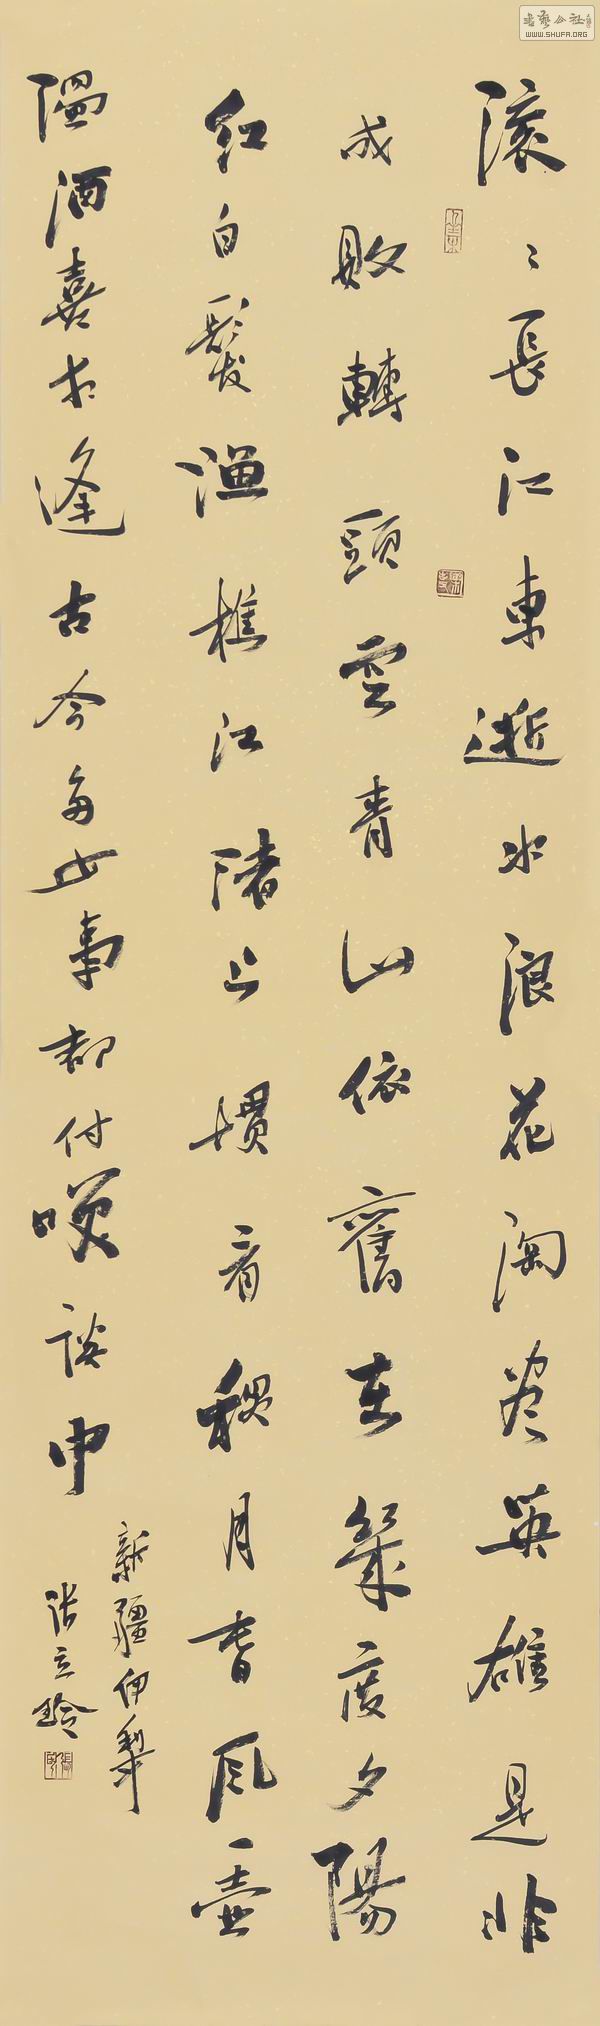 書藝公社
WWW.SHUFA.ORG
滚〻長江東逝水浪花淘尽英雄是非
成敗轉頭空青山依舊在幾度夕陽
红白髮渔樵江渚上惯看秋月春风一壺
酒喜相逢古今多少事都付咲談中
新疆伊犁
张立玲